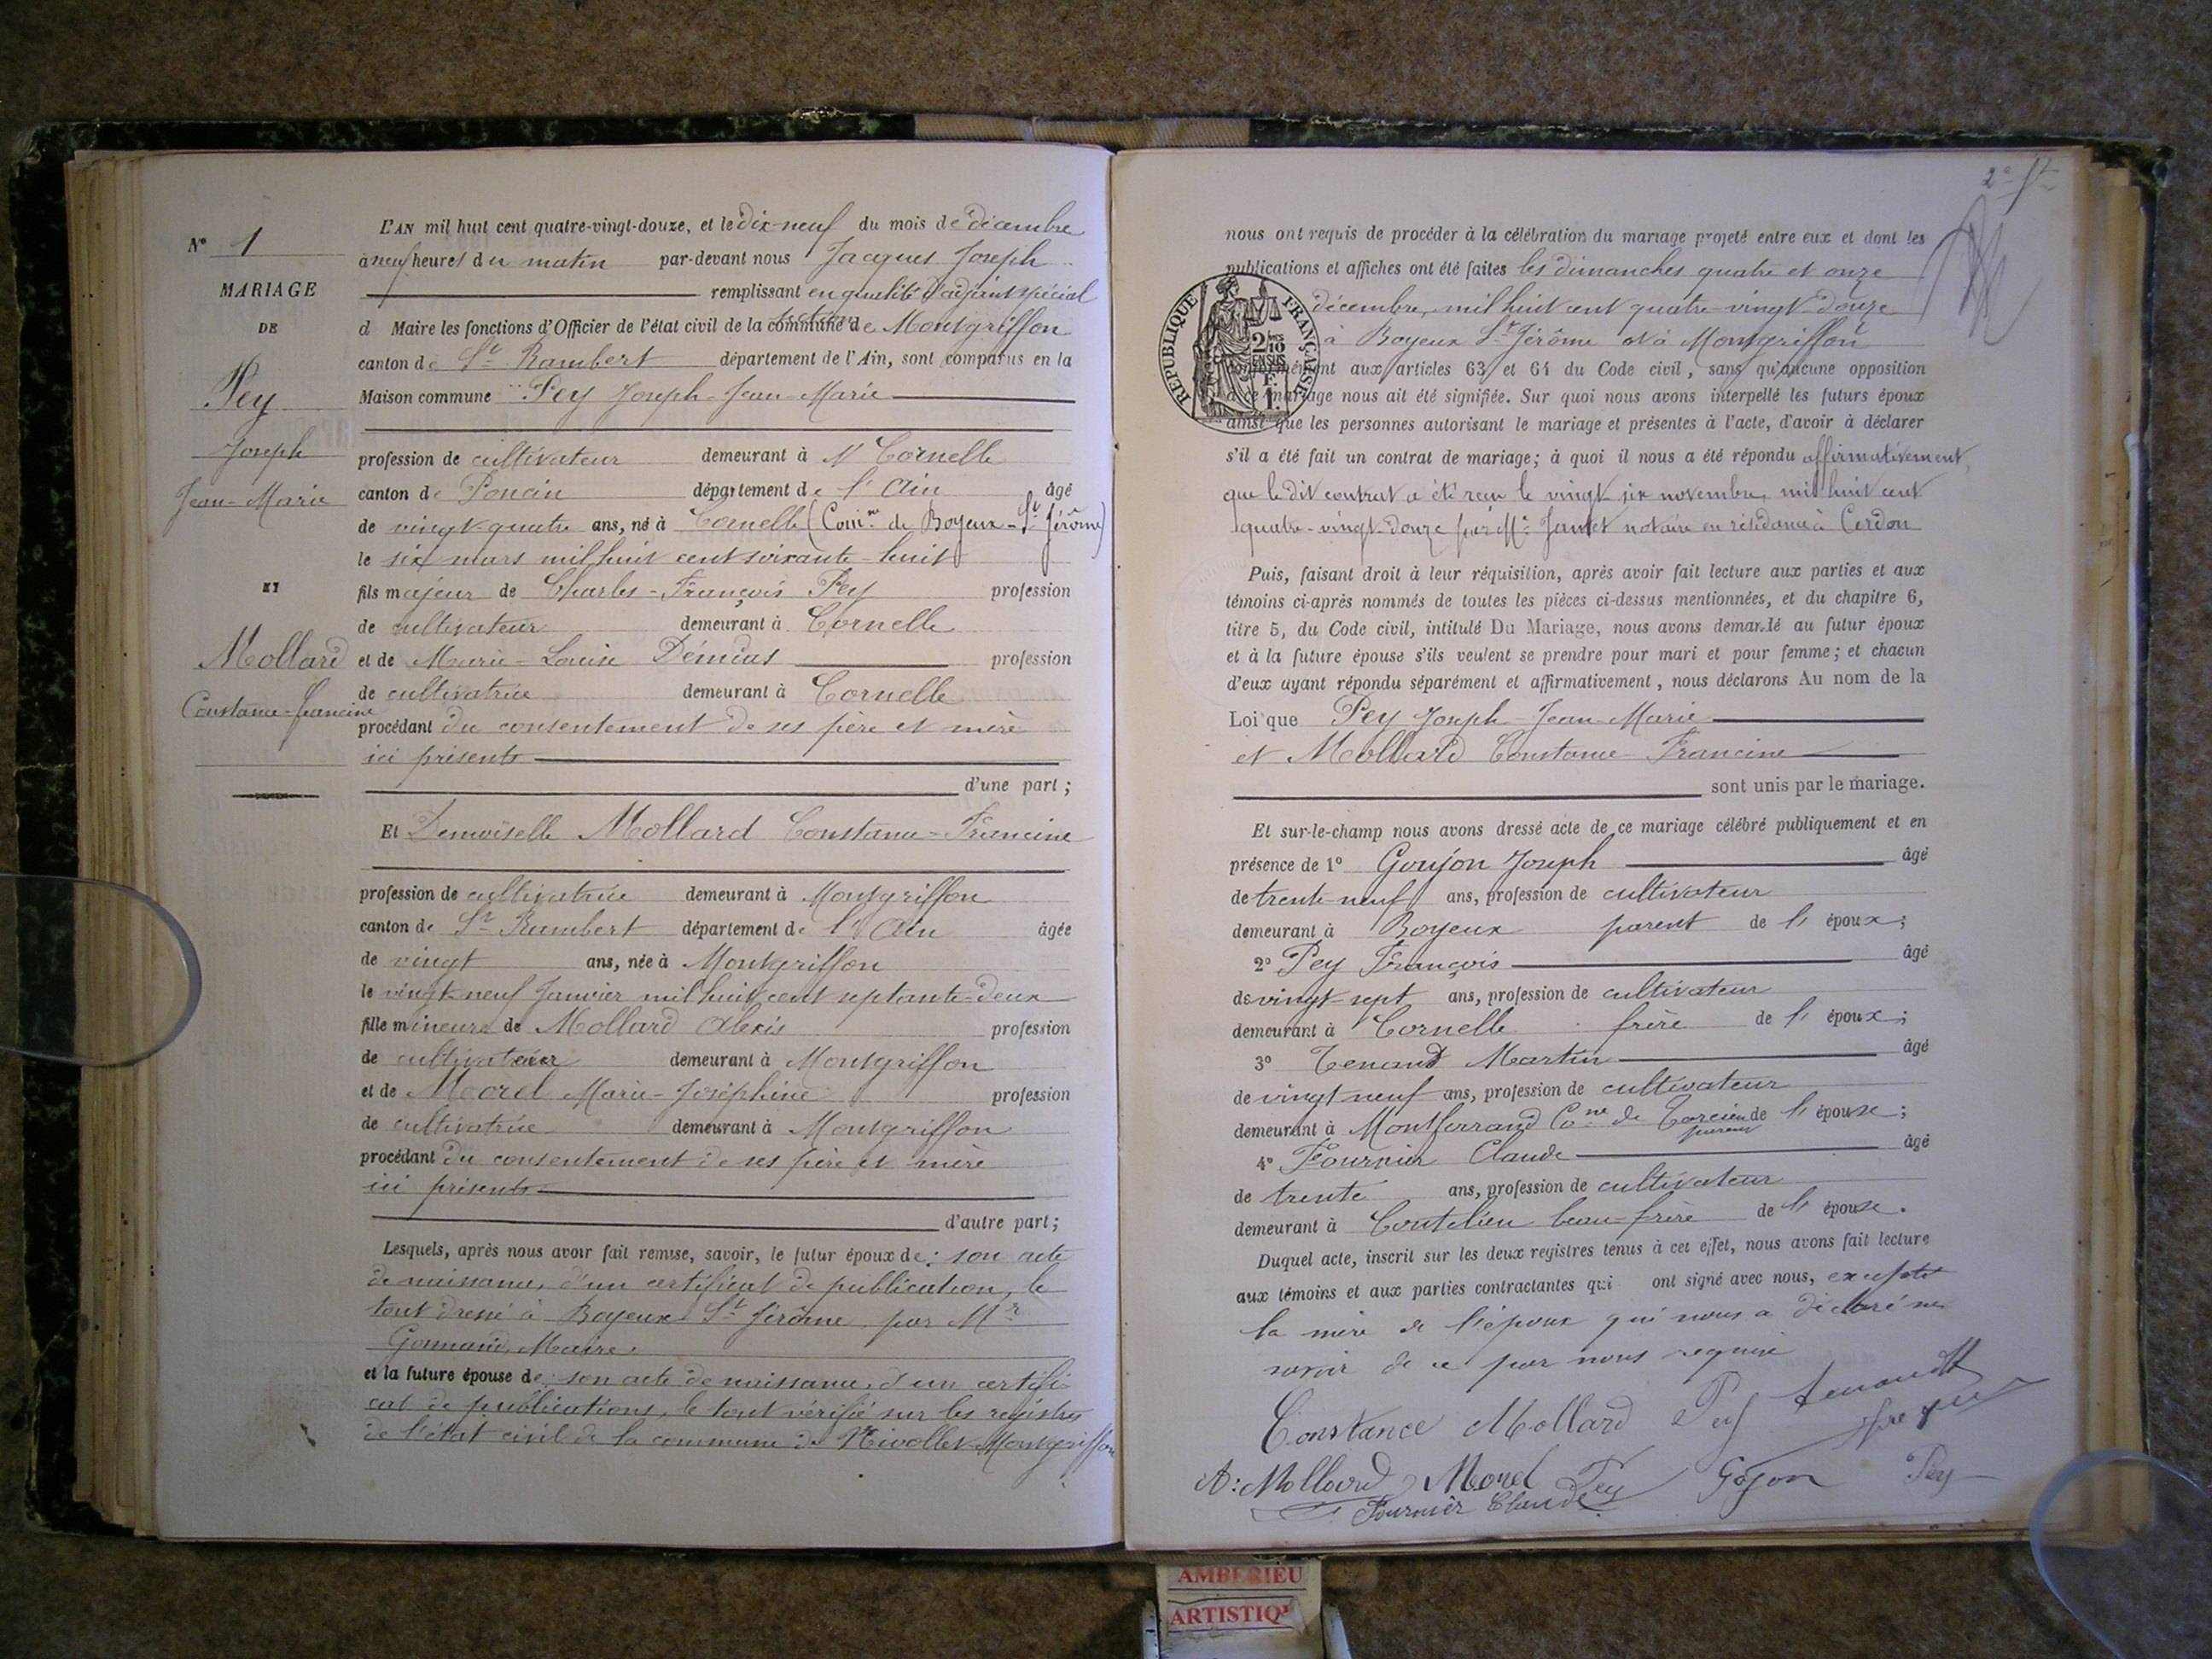 N° 1
MARIAGE
DE
Pey
Joseph
Jean-Marie
ET
Mollard
Constance-Francine
L'AN mil huit cent quatre-vingt-douze, et le dix-neuf du mois de décembre
à neuf heures du matin par-devant nous Jacques Joseph
remplissant en qualité d'adjoint spécial
d Maire les fonctions d'Officier de l'état civil de la commune section de Montgriffon
canton de St Rambert département de l'Ain, sont comparus en la
Maison commune Pey Joseph-Jean-Marie
profession de cultivateur demeurant à Cornelle
canton de Poncin département de l'Ain âgé
de vingt-quatre ans, né à Cornelle (Comne de Boyeux-St Jérôme)
le six mars mil huit cent soixante-huit
fils majeur de Charles-François Pey profession
de cultivateur demeurant à Cornelle
et de Marie-Louise Démias profession
de cultivatrice demeurant à Cornelle
procédant du consentement de ses père et mère
ici présents
d'une part;
Et Demoiselle Mollard Constance-Francine
profession de cultivatrice demeurant à Montgriffon
canton de St Rambert département de l'Ain âgée
de vingt ans, née à Montgriffon
le vingt-neuf Janvier mil huit cent septante-deux
fille mineure de Mollard Alexis profession
de cultivateur demeurant à Montgriffon
et de Morel Marie-Joséphine profession
de cultivatrice demeurant à Montgriffon
procédant du consentement de ses père et mère
ici présents
d'autre part;
Lesquels, après nous avoir fait remise, savoir, le futur époux de: son acte
de naissance, d'un certificat de publication, le
tout dressé à Boyeux St Jérôme par Mr
Maire.
et la future épouse de: son acte de naissance, d'un certifi
cat de publications, le tout vérifié sur les registres
de l'état civil de la commune de Nivollet-Montgriffon
2e
nous ont requis de procéder à la célébration du mariage projeté entre eux et dont les
publications et affiches ont été faites les dimanches quatre et onze
décembre, mil huit cent quatre-vingt-douze
à Boyeux St Jérôme et à Montgriffon
RÉPUBLIQUE FRANÇAISE
2/10 EN SUS
F. 1.
conformément aux articles 63 et 64 du Code civil, sans qu'aucune opposition
à ce mariage nous ait été signifiée. Sur quoi nous avons interpellé les futurs époux
ainsi que les personnes autorisant le mariage et présentes à l'acte, d'avoir à déclarer
s'il a été fait un contrat de mariage; à quoi il nous a été répondu affirmativement,
que le dit contrat a été reçu le vingt-six novembre, mil huit cent
quatre-vingt-douze par Me Jantet notaire en résidence à Cerdon
Puis, faisant droit à leur réquisition, après avoir fait lecture aux parties et aux
témoins ci-après nommés de toutes les pièces ci-dessus mentionnées, et du chapitre 6,
titre 5, du Code civil, intitulé Du Mariage, nous avons demandé au futur époux
et à la future épouse s'ils veulent se prendre pour mari et pour femme; et chacun
d'eux ayant répondu séparément et affirmativement, nous déclarons Au nom de la
Loi que Pey Joseph-Jean-Marie
et Mollard Constance-Francine
sont unis par le mariage.
Et sur-le-champ nous avons dressé acte de ce mariage célébré publiquement et en
présence de 1° Goujon Joseph âgé
de trente-neuf ans, profession de cultivateur
demeurant à Boyeux parent de l'époux;
2° Pey François âgé
de vingt-sept ans, profession de cultivateur
demeurant à Cornelle frère de l'époux;
3° Tenand Martin âgé
de vingt neuf ans, profession de cultivateur
demeurant à Montferrand Cone de Torcieu parent de l'épouse;
4° Fournier Claude âgé
de trente ans, profession de cultivateur
demeurant à Contelieu beau-frère de l'épouse.
Duquel acte, inscrit sur les deux registres tenus à cet effet, nous avons fait lecture
aux témoins et aux parties contractantes qui ont signé avec nous, excepté
la mère de l'époux qui nous a déclaré ne
savoir de ce par nous requise
Constance Mollard Pey
A: Mollard Morel Pey Gojon Pey
Fournier Claude
AMBERIEU
ARTISTIQ